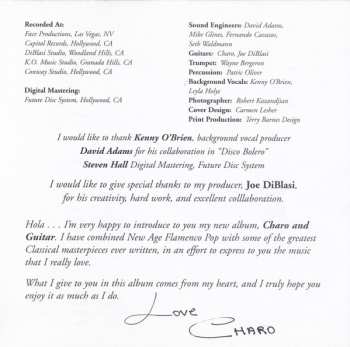 Recorded At:
Face Productions, Las Vegas, NV
Capitol Records, Hollywood, CA
DiBlasi Studio, Woodland Hills, CA
K.O. Music Studio, Granada Hills, CA
Conway Studio, Hollywood, CA
Digital Mastering:
Future Disc System, Hollywood, CA
Sound Engineers: David Adams,
Mike Glines, Fernando Cavazos,
Seth Waldmann
Guitars: Charo, Joe DiBlasi
Trumpet: Wayne Bergeron
Percussion: Patric Oliver
Background Vocals: Kenny O'Brien,
Leyla Hoyle
Photographer: Robert Kazandjian
Cover Design: Carmen Lesher
Print Production: Terry Barnes Design
I would like to thank Kenny O'Brien, background vocal producer
David Adams for his collaboration in "Disco Bolero"
Steven Hall Digital Mastering, Future Disc System
I would like to give special thanks to my producer, Joe DiBlasi,
for his creativity, hard work, and excellent colllaboration.
Hola . . . I'm very happy to introduce to you my new album, Charo and
Guitar. I have combined New Age Flamenco Pop with some of the greatest
Classical masterpieces ever written, in an effort to express to you the music
that I really love.
What I give to you in this album comes from my heart, and I truly hope you
enjoy it as much as I do.
Love
CHARO